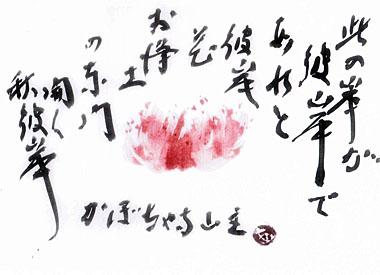 此の岸が
彼岸で
あれと
彼岸
花
お浄
土
の東門
開く
秋彼岸
かぼちゃ寺山主